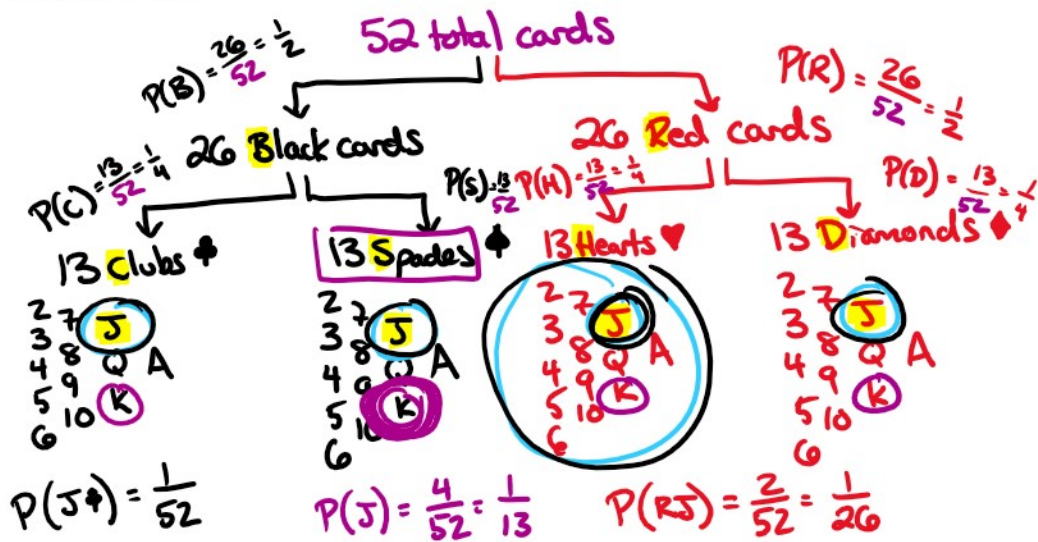 52 total cards
P(B) = 26/52 = 1/2
P(R) = 26/52 = 1/2
26 Black cards
26 Red cards
P(C) = 13/52 = 1/4
P(S) = 13/52
P(H) = 13/52 = 1/4
P(D) = 13/52 = 1/4
13 Clubs ♣
2 7 J
3 8 Q A
4 9 K
5 10
6
13 Spades ♠
2 7 J
3 8 Q A
4 9 K
5 10
6
13 Hearts ♥
2 7 J
3 8 Q A
4 9 K
5 10
6
13 Diamonds ♦
2 7 J
3 8 Q A
4 9 K
5 10
6
P(J♣) = 1/52
P(J) = 4/52 = 1/13
P(RJ) = 2/52 = 1/26